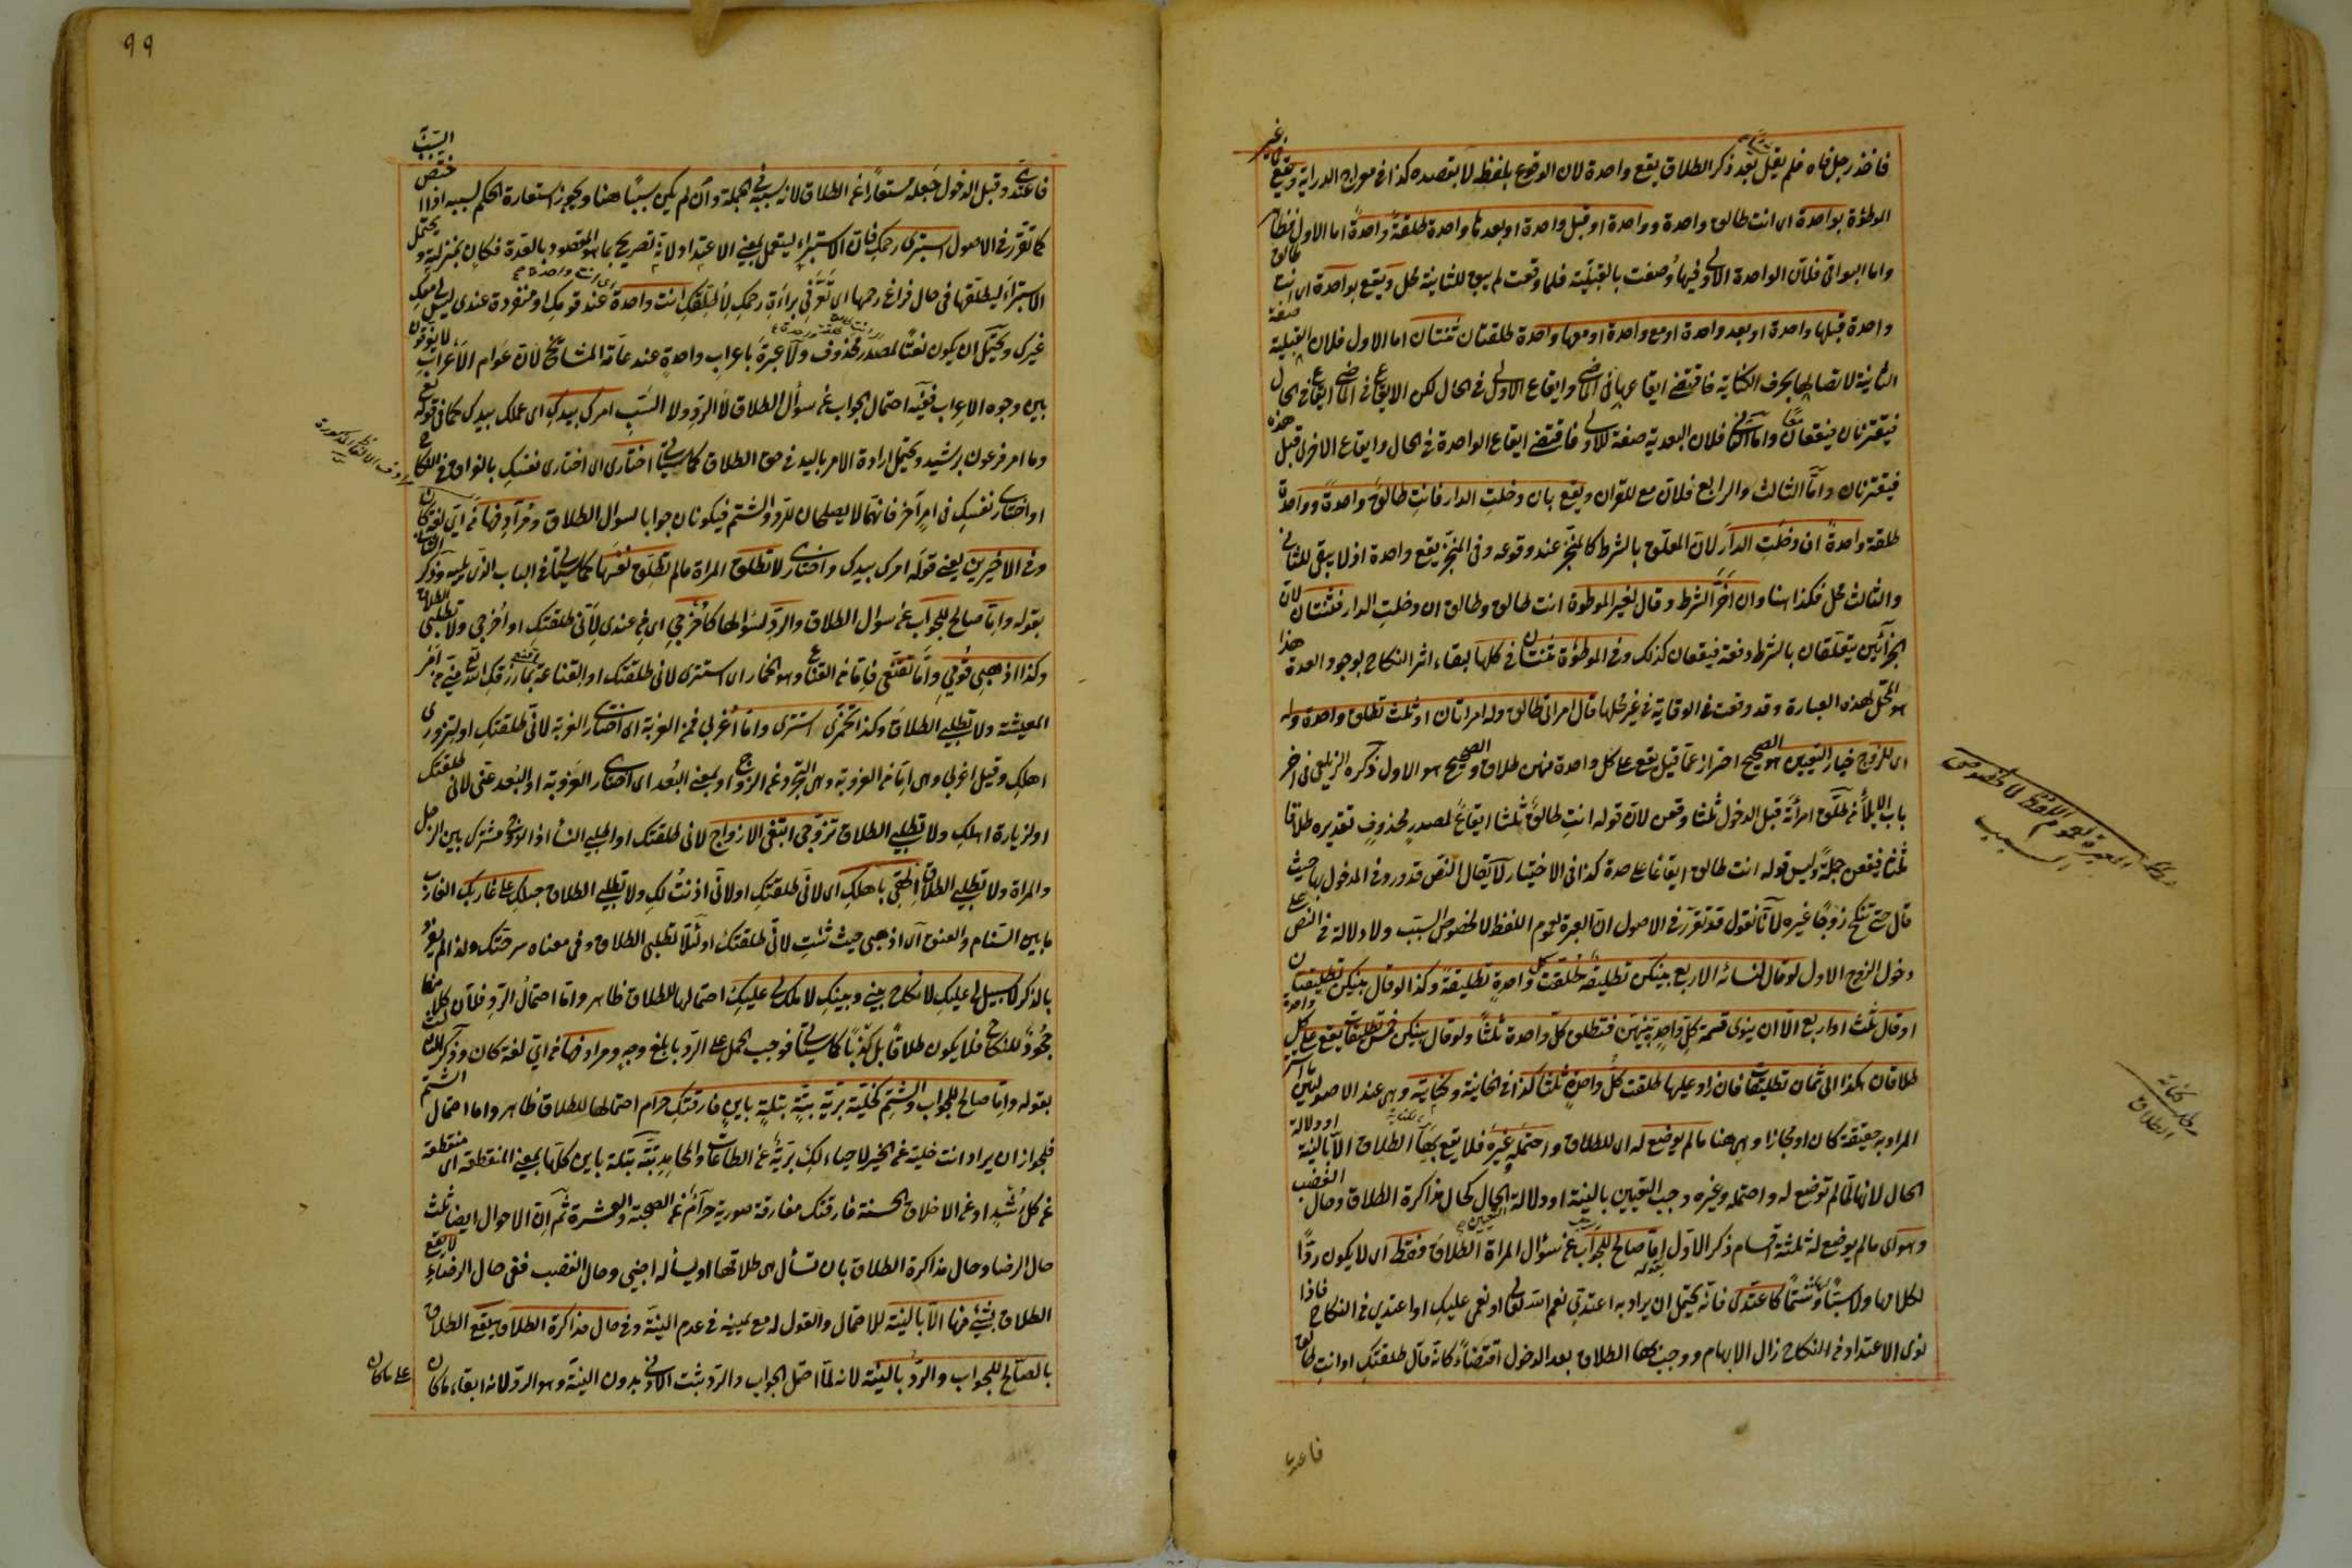 فاخذ رجل فاه فلم يقل بعد ذكر الطلاق يقع واحدة لان الوقوع بلفظ لا بقصده كذا في معراج الدراية ويقع بغير
الموطؤة بواحدة اى انت طالق واحدة وواحدة او قبل واحدة او بعدها واحدة طلقة واحدة اما الاول فظاهر
واما البواقى فلان الواحدة الاولى فيها وُصفت بالقبليّة فلما وقعت لم يبق للثانية محل ويقع بواحدة اى انت طالق
واحدة قبلها واحدة او بعد واحدة او مع واحدة او معها واحدة طلقتان ثنتان اما الاول فلان القبلية صفة
الثانية لاتصالها بحرف الكناية فاقتضى ايقاعها في الماضى وايقاع الاولى في الحال لكن الايقاع في الماضى ايقاع في الحال
فيقترنان فيقعان معًا واما الثانى فلان البعدية صفة للاولى فاقتضى ايقاع الواحدة في الحال وايقاع الاخرى قبل هذه
فيقترنان واما الثالث والرابع فلان مع للقران ويقع بان دخلتِ الدار فانتِ طالق واحدةً وواحدة
طلقة واحدةً ان دخلتِ الدار لان المعلق بالشرط كالمنجّز عند وقوعه وفى المنجّز يقع واحدة اذ لا يبقى للثانى
والثالث محل فكذا هنا وان اخّر الشرط وقال لغير الموطوة انت طالق وطالق ان دخلتِ الدار فثنتان لان
الجزائين يتعلقان بالشرط دفعة فيقعان كذلك وفى الموطؤة ثنتان في كلها لبقاء اثر النكاح بوجود العدة هذا
هو المحل لهذه العبارة وقد وقعت في الوقاية في غير محلها قال امراتى طالق وله امراتان او ثلث تطلق واحدة وله
اى للزوج خيار التعيين هو الصحيح احتراز عمّا قيل يقع على كل واحدة منهن طلاق والصحيح هو الاول ذكره الزيلعى في اخر
باب الايلاء طلّق امرأته قبل الدخول ثلثا وقعن لان قوله انتِ طالق ثلثا ايقاع لمصدرٍ محذوفٍ تقديره طلاقا
ثلثا فيقعن جملةً وليس قوله انت طالق ايقاعا على حدة كذا في الاختيار لا يقال النص قد ورد في المدخول بها حيث
قال حتى تنكح زوجًا غيره لانّا نقول قد تقرر في الاصول ان العبرة لعموم اللفظ لا لخصوص السبب ولا دلالة في النص على
دخول الزوج الاول لو قال لنسائه الاربع بينكن تطليقة طلقت كل واحدةٍ تطليقةً وكذا لو قال بينكن تطليقتان
او قال ثلث او اربع الا ان ينوى قسمة كل واحدٍ بينهن فتطلق كل واحدة ثلثًا ولو قال بينكن خمس تطليقات يقع على كل واحدة
طلاقان هكذا الى ثمان تطليقات فان زاد عليها طلقت كل واحدةٍ ثلثا كذا في الخانية وكنايته وهى عند الاصوليين ما استتر
المراد به حقيقة كان او مجازا وهى هنا ما لم يوضع له اى للطلاق واحتمله وغيره فلا يقع بها الطلاق الا بالنية او دلالة
الحال لانها لما لم توضع له واحتمله وغيره وجب التعيين بالنية او دلالة الحال كحال مذاكرة الطلاق وحال الغضب
وهو اى ما لم يوضع له ثلثة اقسام ذكر الاول بقوله امّا صالح للجواب عن سؤال المراة الطلاق فقط اى لا يكون ردًّا
لكلامها ولا سبًّا وشتمًا كاعتدّى فانه يحتمل ان يراد به اعتدى نعم الله تعالى او نعمى عليكِ او اعتدى في النكاح فاذا
نوى الاعتداد في النكاح زال الابهام ووجب بها الطلاق بعد الدخول اقتضاءً كانه قال طلقتكِ او انتِ طالق
فاعتدى
العبرة لعموم اللفظ لا لخصوص السبب
مطلب كناية الطلاق
٩٩
فاعتدى وقبل الدخول جعله مستعارًا عن الطلاق لانه سببه في الجملة وان لم يكن سببًا هنا ويجوز استعارة الحكم لسببه اذا اختص السبب
كما تقرر في الاصول استبرئى رحمكِ فان الاستبراء يستعمل بمعنى الاعتداد لانه تصريح بما هو المقصود بالعدة فكان بمنزلته ويحتمل
الاستبراء ليطلقها في حال فراغ رحمها اى تعرّفى براءة رحمكِ لاُطلّقكِ انت واحدة عند قومكِ او منفردة عندى ليس لى معكِ
غيرك ويحتمل ان يكون نعتًا لمصدر محذوف ولا عبرة باعراب واحدةٍ عند عامة المشائخ لان عوام الاعراب لا يفرقون
بين وجوه الاعراب ففيه احتمال الجواب عن سؤال الطلاق لا الردّ ولا السّبّ امركِ بيدكِ اى عملك بيدك كما في قوله تعالى
وما امر فرعون برشيد ويحتمل ارادة الامر باليد في حق الطلاق كما سياتى اختارى اى اختارى نفسكِ بالفراق في النكاح
او اختارى نفسكِ في امر آخر فانهما لا يصلحان للرد والشتم فيكونان جوابا لسؤال الطلاق ومرادفها من اىّ لغة كان
وفى الاخيرين يعنى قوله امرك بيدك واختارى لا تطلق المراة ما لم تطلّق نفسها كما سياتى في الباب الذى يليه وذكر الثانى
بقوله وامّا صالح للجواب عن سؤال الطلاق والردّ لسؤالها كاخرجى اى من عندى لانّى طلقتكِ او اخرجى ولا تطلبى الطلاق
وكذا اذهبى قومى وامّا تقنّعى فامّا من القناع وهو الخمار اى استترى لانى طلقتك او القناعة اقنعى بما رزقكِ الله منّى من امر
المعيشة ولا تطلبى الطلاق وكذا تخمرى استترى وامّا اغربى فمن الغربة اى اختارى الغربة لانّى طلقتكِ او لتزورى
اهلكِ وقيل اعزبى وهى امّا من العزوبة وهى التجرد عن الزوج او بمعنى البعد اى اختارى العزوبة او البُعد عنى لانى طلقتك
او لزيارة اهلكِ ولا تطلبى الطلاق تزوّجى ابتغى الازواج لانى طلقتك او اطلبى النساء اذ الزوج مشترك بين الرجل
والمراة ولا تطلبى الطلاق الحقى باهلكِ اى لانّى طلقتكِ او لانّى اذنتُ لكِ ولا تطلبى الطلاق حبلكِ على غاربك الغارب
ما بين السّنام والعنق اى اذهبى حيث شئتِ لانّى طلقتكِ او لئلّا تطلبى الطلاق وفى معناه سرحتك ولذا لم يفرد
بالذكر لا سبيل لى عليكِ لا نكاح بينى وبينكِ لا ملك لى عليكِ احتمالها للطلاق ظاهر وامّا احتمال الردّ فلان كلا منها
جحودٌ للنكاح فلا يكون طلاقًا بل كذبًا كما سياتى فوجب الحمل على الردّ بابلغ وجهٍ ومرادفها من اىّ لغة كان وذكر الثالث
بقوله وامّا صالح للجواب والشتم كخليّة بريّة بتّة بتلة باين فارقتكِ حرام احتمالها للطلاق ظاهر واما احتمال الشتم
فلجواز ان يراد انت خلية عن الخير لا حياء لكِ بريّة عن الطاعات والمحامد بتّة بتلة باين كلها بمعنى المنقطعة اى منقطعة
عن كل رُشدٍ او عن الاخلاق الحسنة فارقتك مفارقة صورية حرام عن الصحبة والعشرة ثمّ ان الاحوال ايضا ثلث
حال الرضا وحال مذاكرة الطلاق بان تسأل هى طلاقها او يسأله اجنبى وحال الغضب ففى حال الرضاء لا يقع
الطلاق بشئ منها الا بالنية للاحتمال والقول له مع يمينه في عدم النيّة وفى حال مذاكرة الطلاق يقع الطلاق
بالصالح للجواب والردّ بالنيّة لانه لمّا احتمل الجواب والردّ ثبت الادنى بدون النيّة وهو الرد لانه ابقاء ما كان
على ما كان